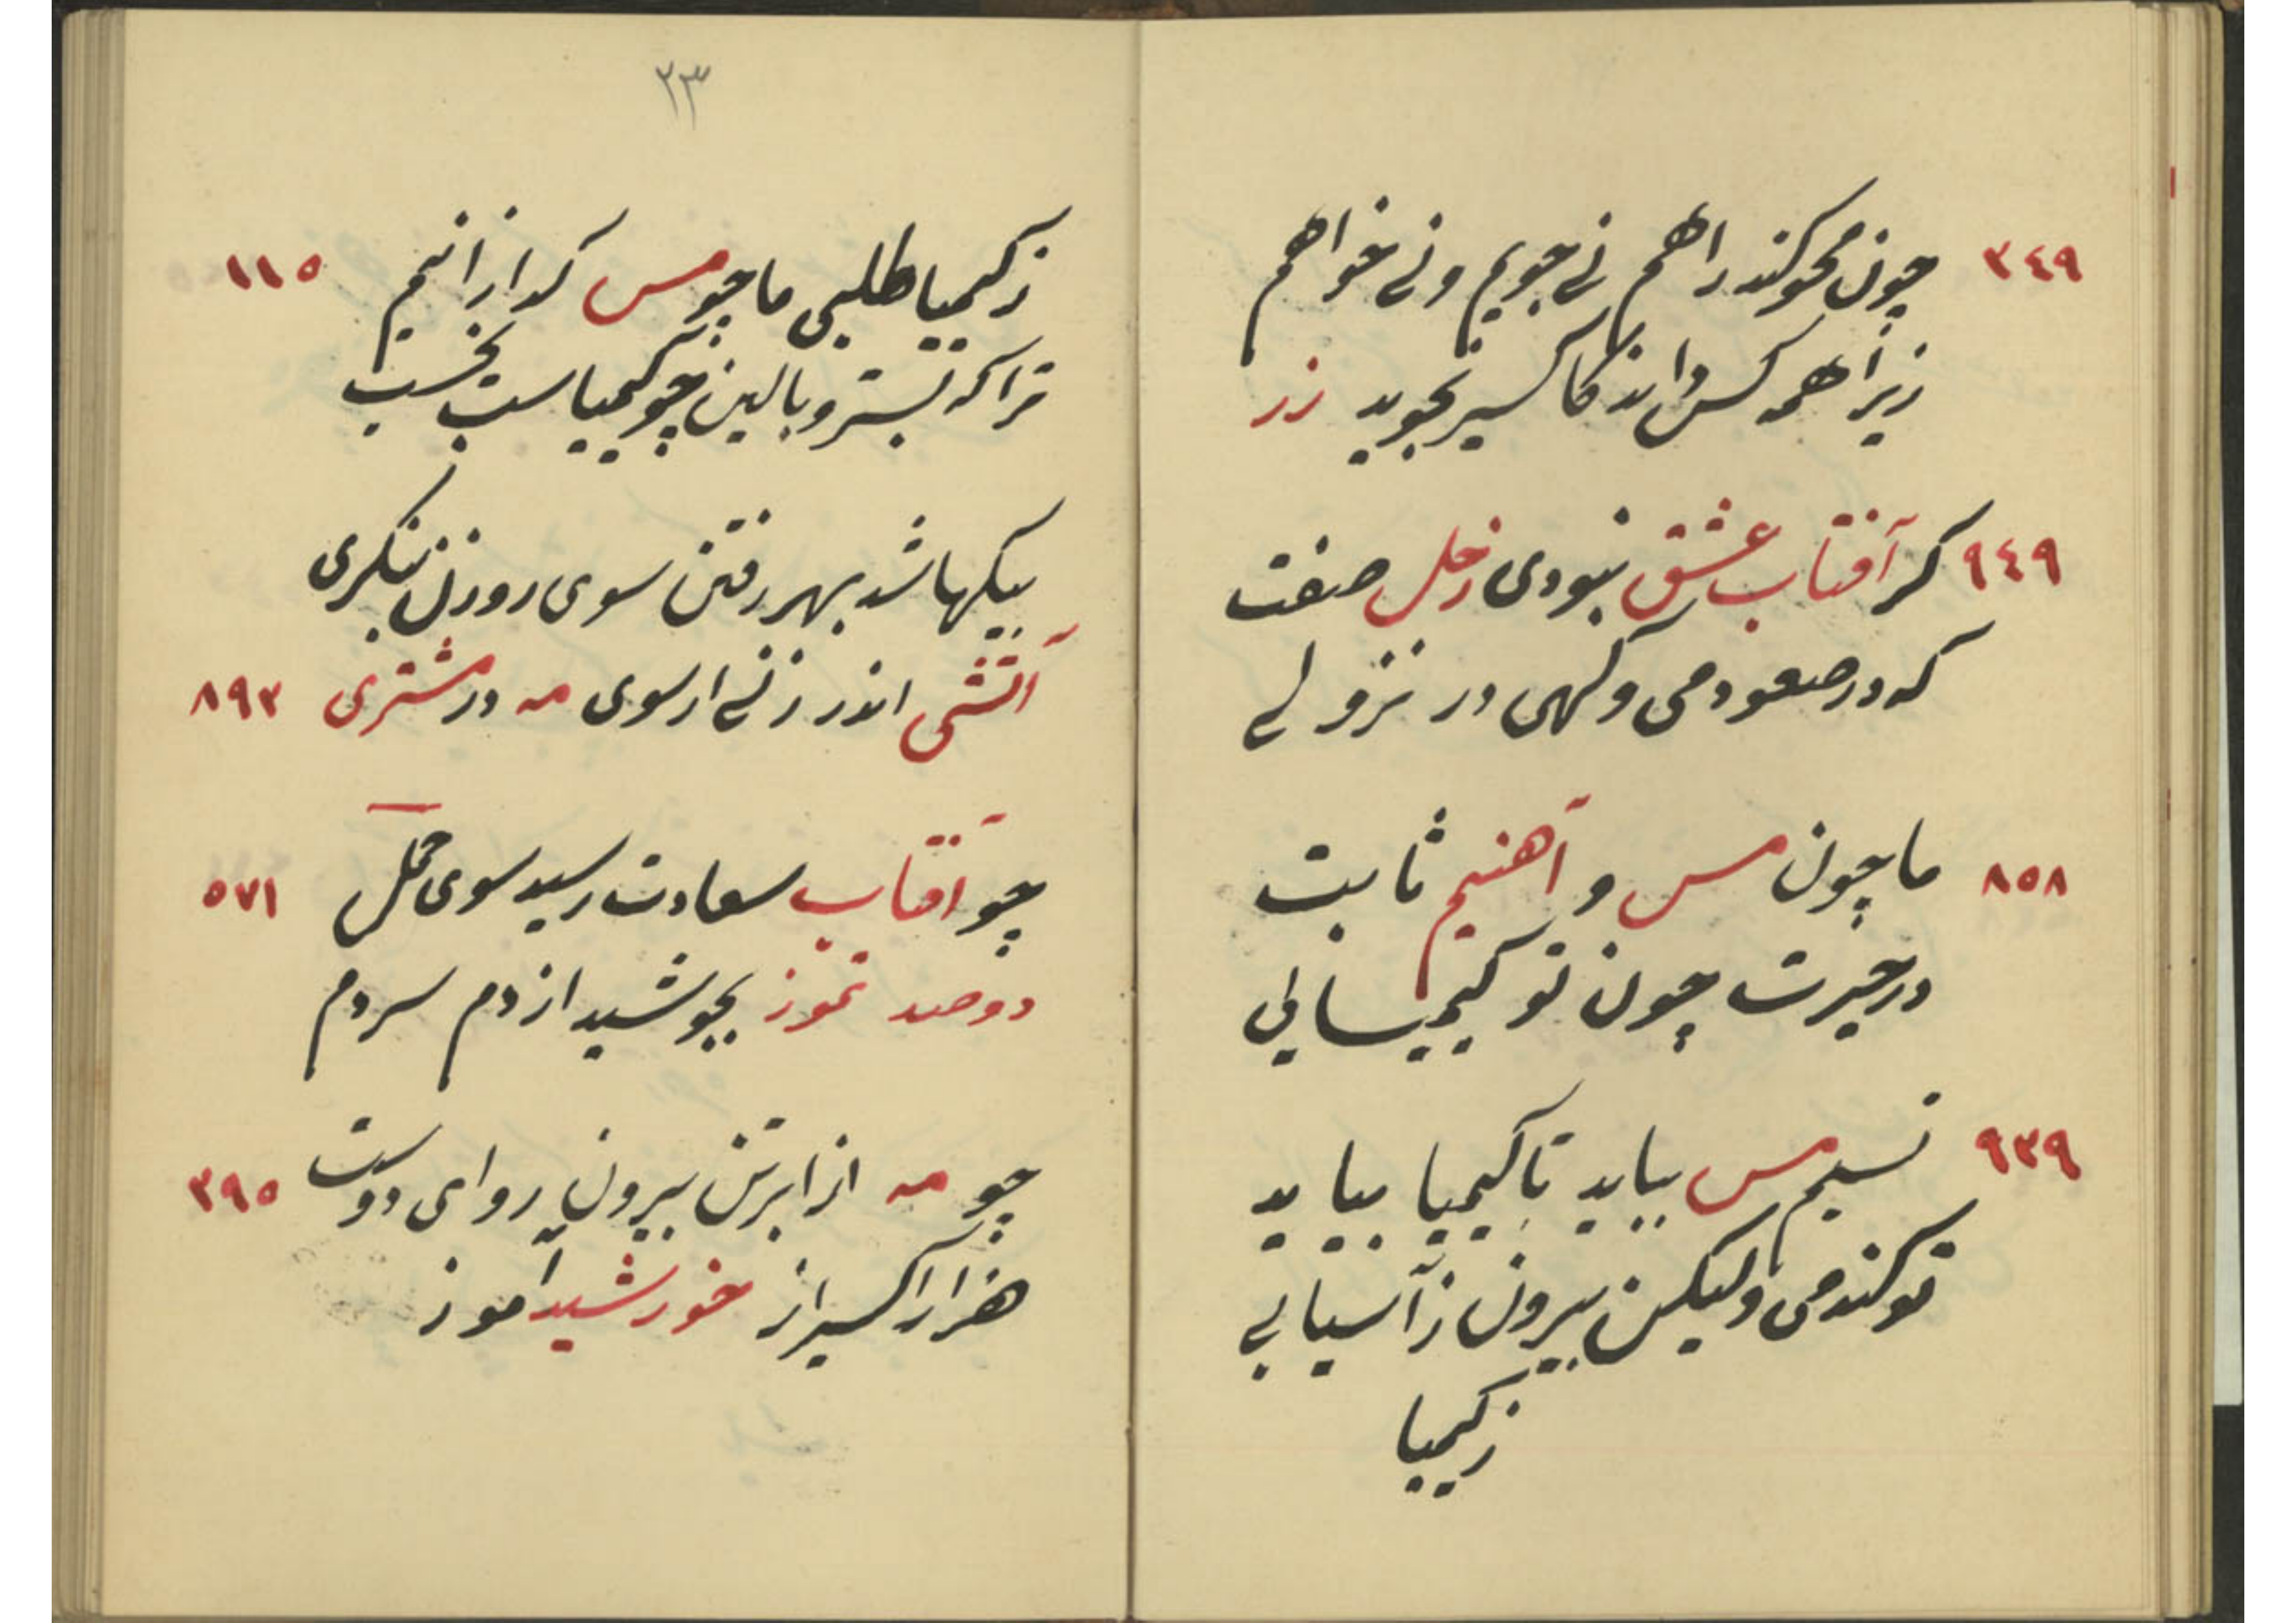 ٣٤٩ چون محو کند راهم نے جویم ونے خواهم
زیرا همه کس داند کاکسیر نجوید زر
٩٤٩ کر آفتاب عشق نبودی زحل صفت
که در صعود می وکهی در نزولے
٨٥٨ ما چون مس و آهنیم ثابت
در حیرت چون تو کیمیائی
٩٣٩ نسیم مس بیاید تا کیمیا بیاید
تو کندمی ولیکن بیرون ز آسیابی
ز کیمیا
٢٣
ز کیمیا طلبی ما چو مس کدازانیم ١١٥
ترا که بستر و بالین چو کیمیاست بخسب
بیکها شد بهر رفتن سوی روزن ننکری
آتشی اندر زنے از سوی مه در مشتری ٨٩٣
چو آفتاب سعادت رسید سوی حمل ٥٧١
دوصد تموز بجوشید از دم سردم
چو مه از ابر تن بیرون رو ای دوست ٣٩٥
هزار اکسیر از خورشید آموز